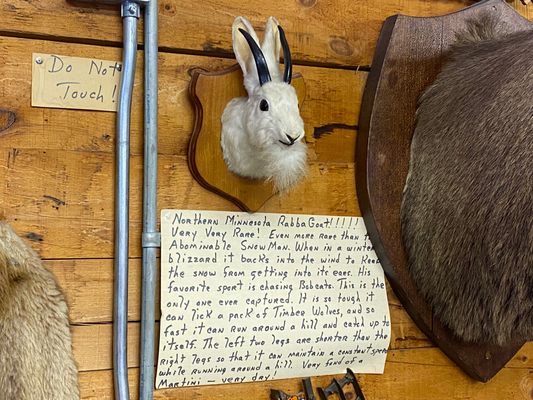 Do Not
Touch!
Northern Minnesota RabbaGoat!!!!!
Very Very Rare! Even more rare than
Abominable SnowMan. When in a winter
blizzard it backs into the wind to keep
the snow from getting into its ears. His
favorite sport is chasing Bobcats. This is the
only one ever captured. It is so tough it
can lick a pack of Timber Wolves, and so
fast it can run around a hill and catch up to
itself. The left two legs are shorter than the
right legs so that it can maintain a constant speed
while running around a hill. Very fond of a
Martini — very dry!